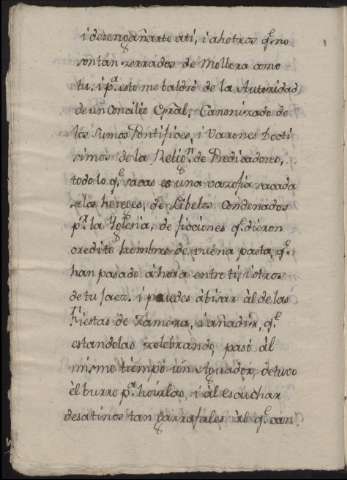 i desengañarte a ti, i a hotros q.e no
son tan serrados de Mollera como
tu. i p.a esto me baldré de la Autoridad
de un Concilio Gral, Canonizado de
los Sumos Pontifises, i Varones Docti
simos de la Relig.n de Predicadores,
todo lo q.e sacas es una sarada
a los hereges, de Libelos Condenados
p.r la Yglecia, de ficciones q.e dieron
credito hombres de buena pasta, q.e
han pasado ahora entre ti, i otros
de tu jaes, i puedes abisar al de las
Fiestas de Zamora, i añadir, q.e
estandolas selebrando, pasó al
mismo tiempo un Aguador, detuvo
el burro p.a hoirlos, i al escuchar
desatinos tan garrafales, al q.e